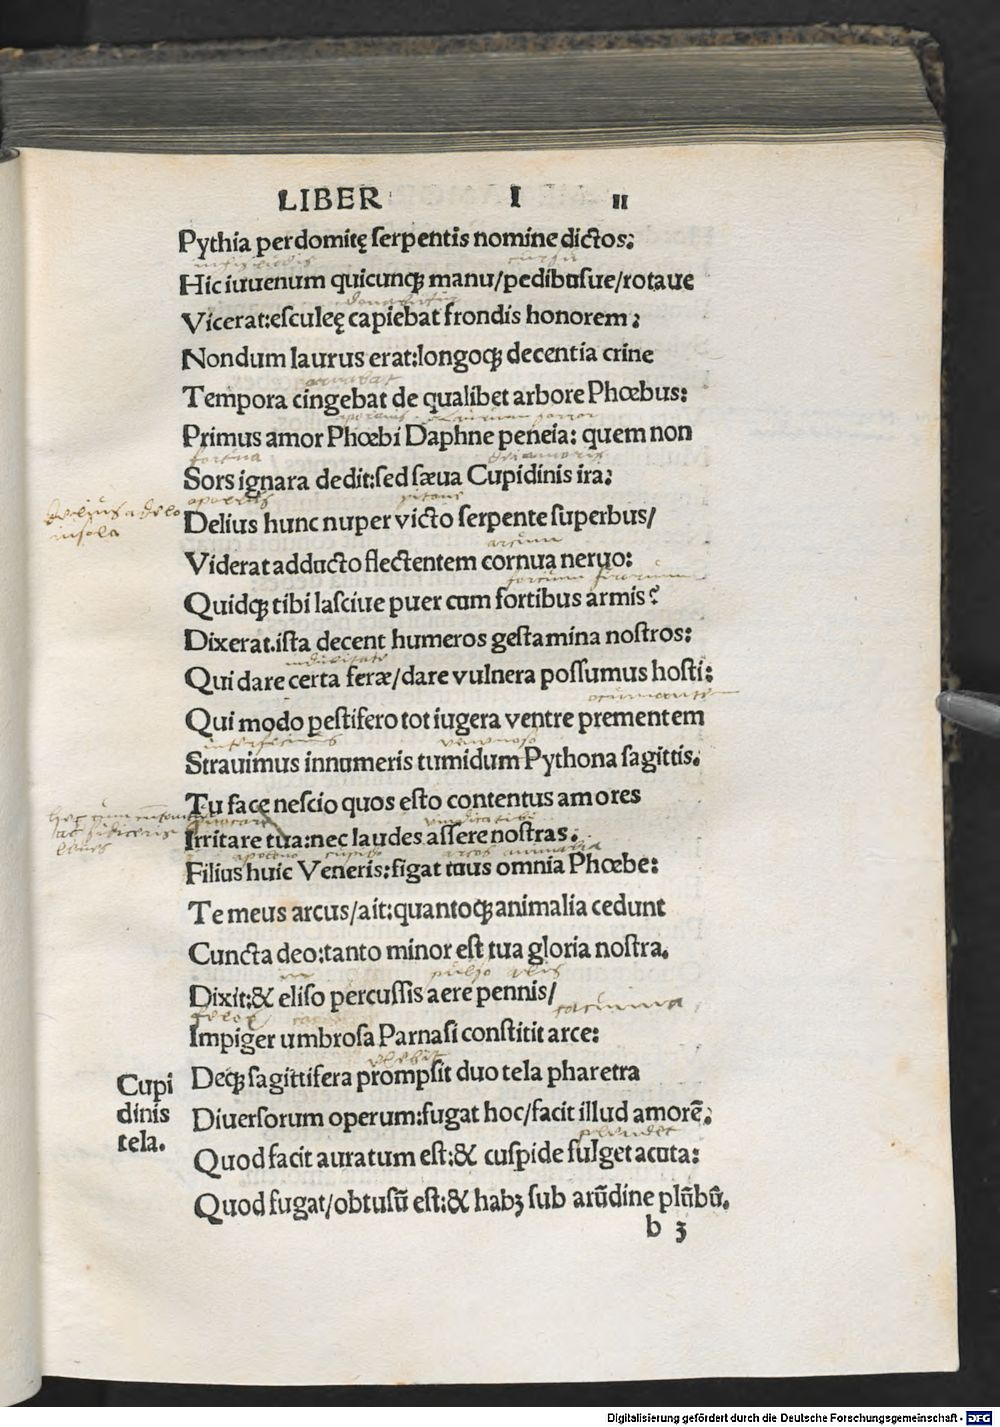 LIBER I II
Pythia perdomitę ſerpentis nomine dictos:
Hic iuuenum quicunqꝫ manu/pedibuſue/rotaue
Vicerat:eſculeę capiebat frondis honorem:
Nondum laurus erat:longoqꝫ decentia crine
Tempora cingebat de qualibet arbore Phœbus:
Primus amor Phœbi Daphne peneia: quem non
fortuna
Sors ignara dedit:ſed ſæua Cupidinis ira:
delius a delo
inſola
Delius hunc nuper victo ſerpente ſuperbus/
arcum
Viderat adducto flectentem cornua neruo:
Quidqꝫ tibi laſciue puer cum fortibus armis?
Dixerat.iſta decent humeros geſtamina noſtros:
Qui dare certa feræ/dare vulnera poſſumus hoſti:
Qui modo peſtifero tot iugera ventre prementem
venenoſo
Strauimus innumeris tumidum Pythona ſagittis.
Tu face neſcio quos eſto contentus amores
Irritare tua:nec laudes aſſere noſtras.
cupido
Filius huic Veneris:figat tuus omnia Phœbe:
Te meus arcus/ait:quantoqꝫ animalia cedunt
Cuncta deo:tanto minor eſt tua gloria noſtra.
pulſo alis
Dixit:& eliſo percuſſis aere pennis/
cacumina
Impiger umbroſa Parnaſi conſtitit arce:
Cupi
dinis
tela.
Deqꝫ ſagittifera prompſit duo tela pharetra
Diuerſorum operum:fugat hoc/facit illud amorē:
ſplendet
Quod facit auratum eſt:& cuſpide fulget acuta:
Quod fugat/obtuſū eſt:& habꝫ ſub arūdine plūbū.
b 3
Digitalisierung gefördert durch die Deutsche Forschungsgemeinschaft - DFG